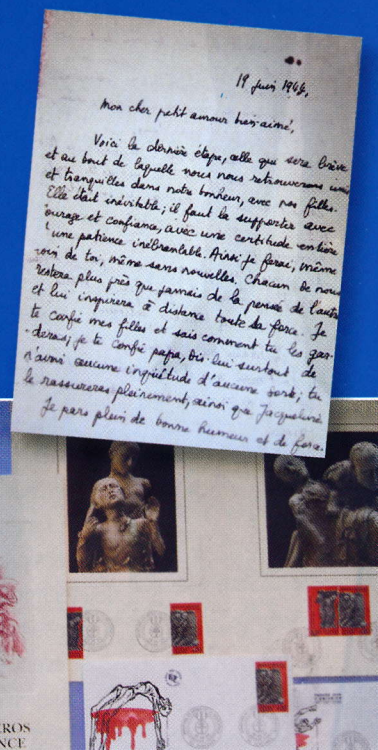 19 juin 1944,
mon cher petit amour bien-aimé,
Voici la dernière étape, celle qui sera brève
et au bout de laquelle nous nous retrouverons unis
et tranquilles dans notre bonheur, avec nos filles.
Elle était inévitable ; il faut la supporter avec
ourage et confiance, avec une certitude entière
une patience inébranlable. Ainsi je ferai, même
oin de toi, même sans nouvelles. Chacun de nous
restera plus près que jamais de la pensée de l'autre
et lui inspirera à distance toute sa force. Je
te confie mes filles et sais comment tu les gar-
deras ; je te confie papa, dis-lui surtout de
n'avoir aucune inquiétude d'aucune sorte ; tu
le rassureras pleinement, ainsi que Jacqueline.
Je pars plein de bonne humeur et de force.
ROS
NCE